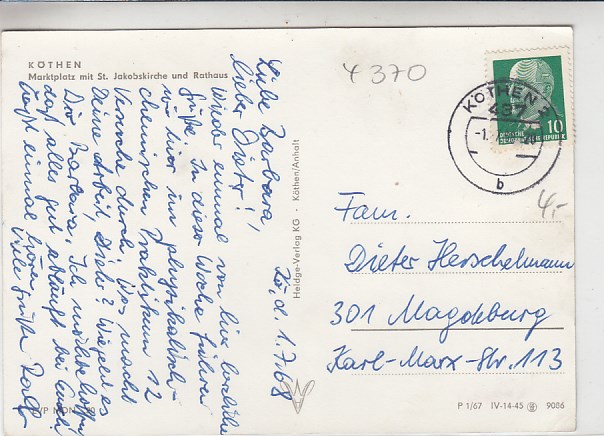 KÖTHEN
Marktplatz mit St. Jakobskirche und Rathaus
4370
KÖTHEN 2
437
-1.
b
10
DEUTSCHE
DEMOKRATISCHE REPUBLIK
4,-
Kö, d. 1.7.68
Liebe Barbara,
lieber Dieter!
Wieder einmal von hier herzliche
Grüße. In dieser Woche führen
wir hier im physikalisch-
chemischen Praktikum 12
Versuche durch. Was macht
Deine Arbeit, Dieter? Wie geht es
Dir, Barbara. Ich möchte hoffen,
daß alles gut abläuft bei Euch.
Laßt einmal hören.
Viele Grüße Rolf
Heldge-Verlag KG · Köthen/Anhalt
Fam.
Dieter Herschelmann
301 Magdeburg
Karl-Marx-Str. 113
EVP MDN
P 1/67 IV-14-45 9086